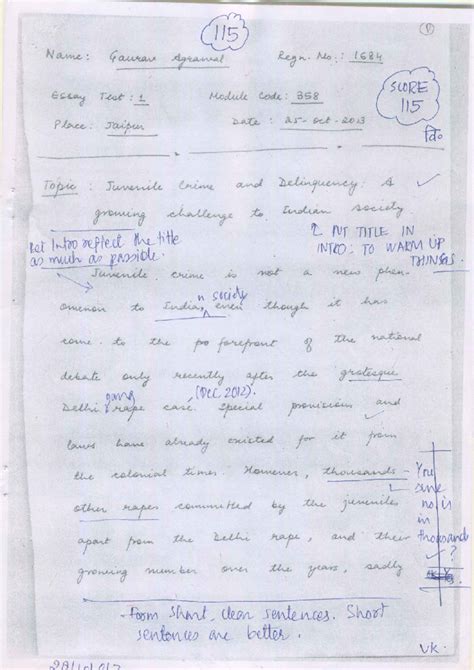 115
①
Name: Gaurav Agrawal Regn. No.: 1684
Essay Test: 1 Module Code: 358
SCORE
115
Place: Jaipur Date: 25-Oct-2013
Topic: Juvenile Crime and Delinquency: A
growing challenge to Indian Society
Let Intro reflect the title
as much as possible.
PUT TITLE IN
INTRO: TO WARM UP
THINGS.
Juvenile crime is not a new phen-
n society
omenon to India, even though it has
come to the po forefront of the national
debate only recently after the grotesque
gang (DEC 2012).
Delhi rape case. Special provisions and
laws have already existed for it from
the colonial times. However, thousands
You
sure
no is
in
thousand
?
other rapes committed by the juveniles
apart from the Delhi rape, and their
growing number over the years, sadly
- Form short, clear sentences. Short
sentences are better.
VK.